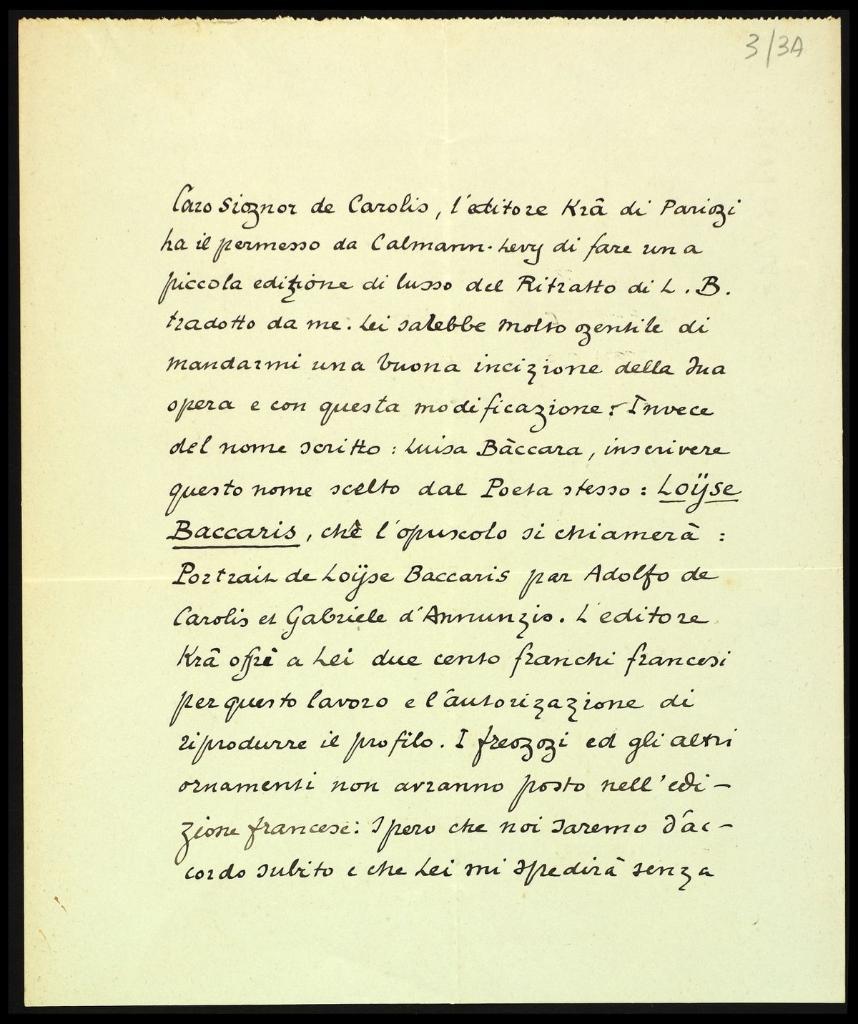 3/3A
Caro Signor de Carolis, l'editore Krâ di Parigi
ha il permesso da Calmann-Levy di fare una
piccola edizione di lusso del Ritratto di L. B.
tradotto da me. Lei salebbe molto gentile di
mandarmi una buona incizione della sua
opera e con questa modificazione: Invece
del nome scritto: Luisa Bàccara, inscrivere
questo nome scelto dal Poeta stesso: Loÿse
Baccaris, chè l'opuscolo si chiamerà:
Portrait de Loÿse Baccaris par Adolfo de
Carolis et Gabriele d'Annunzio. L'editore
Krâ offrè a Lei due cento franchi francesi
per questo lavoro e l'autorizazione di
riprodurre il profilo. I freggi ed gli altri
ornamenti non avranno posto nell'edi-
zione francese: Spero che noi saremo d'ac-
cordo subito e che Lei mi spedirà senza